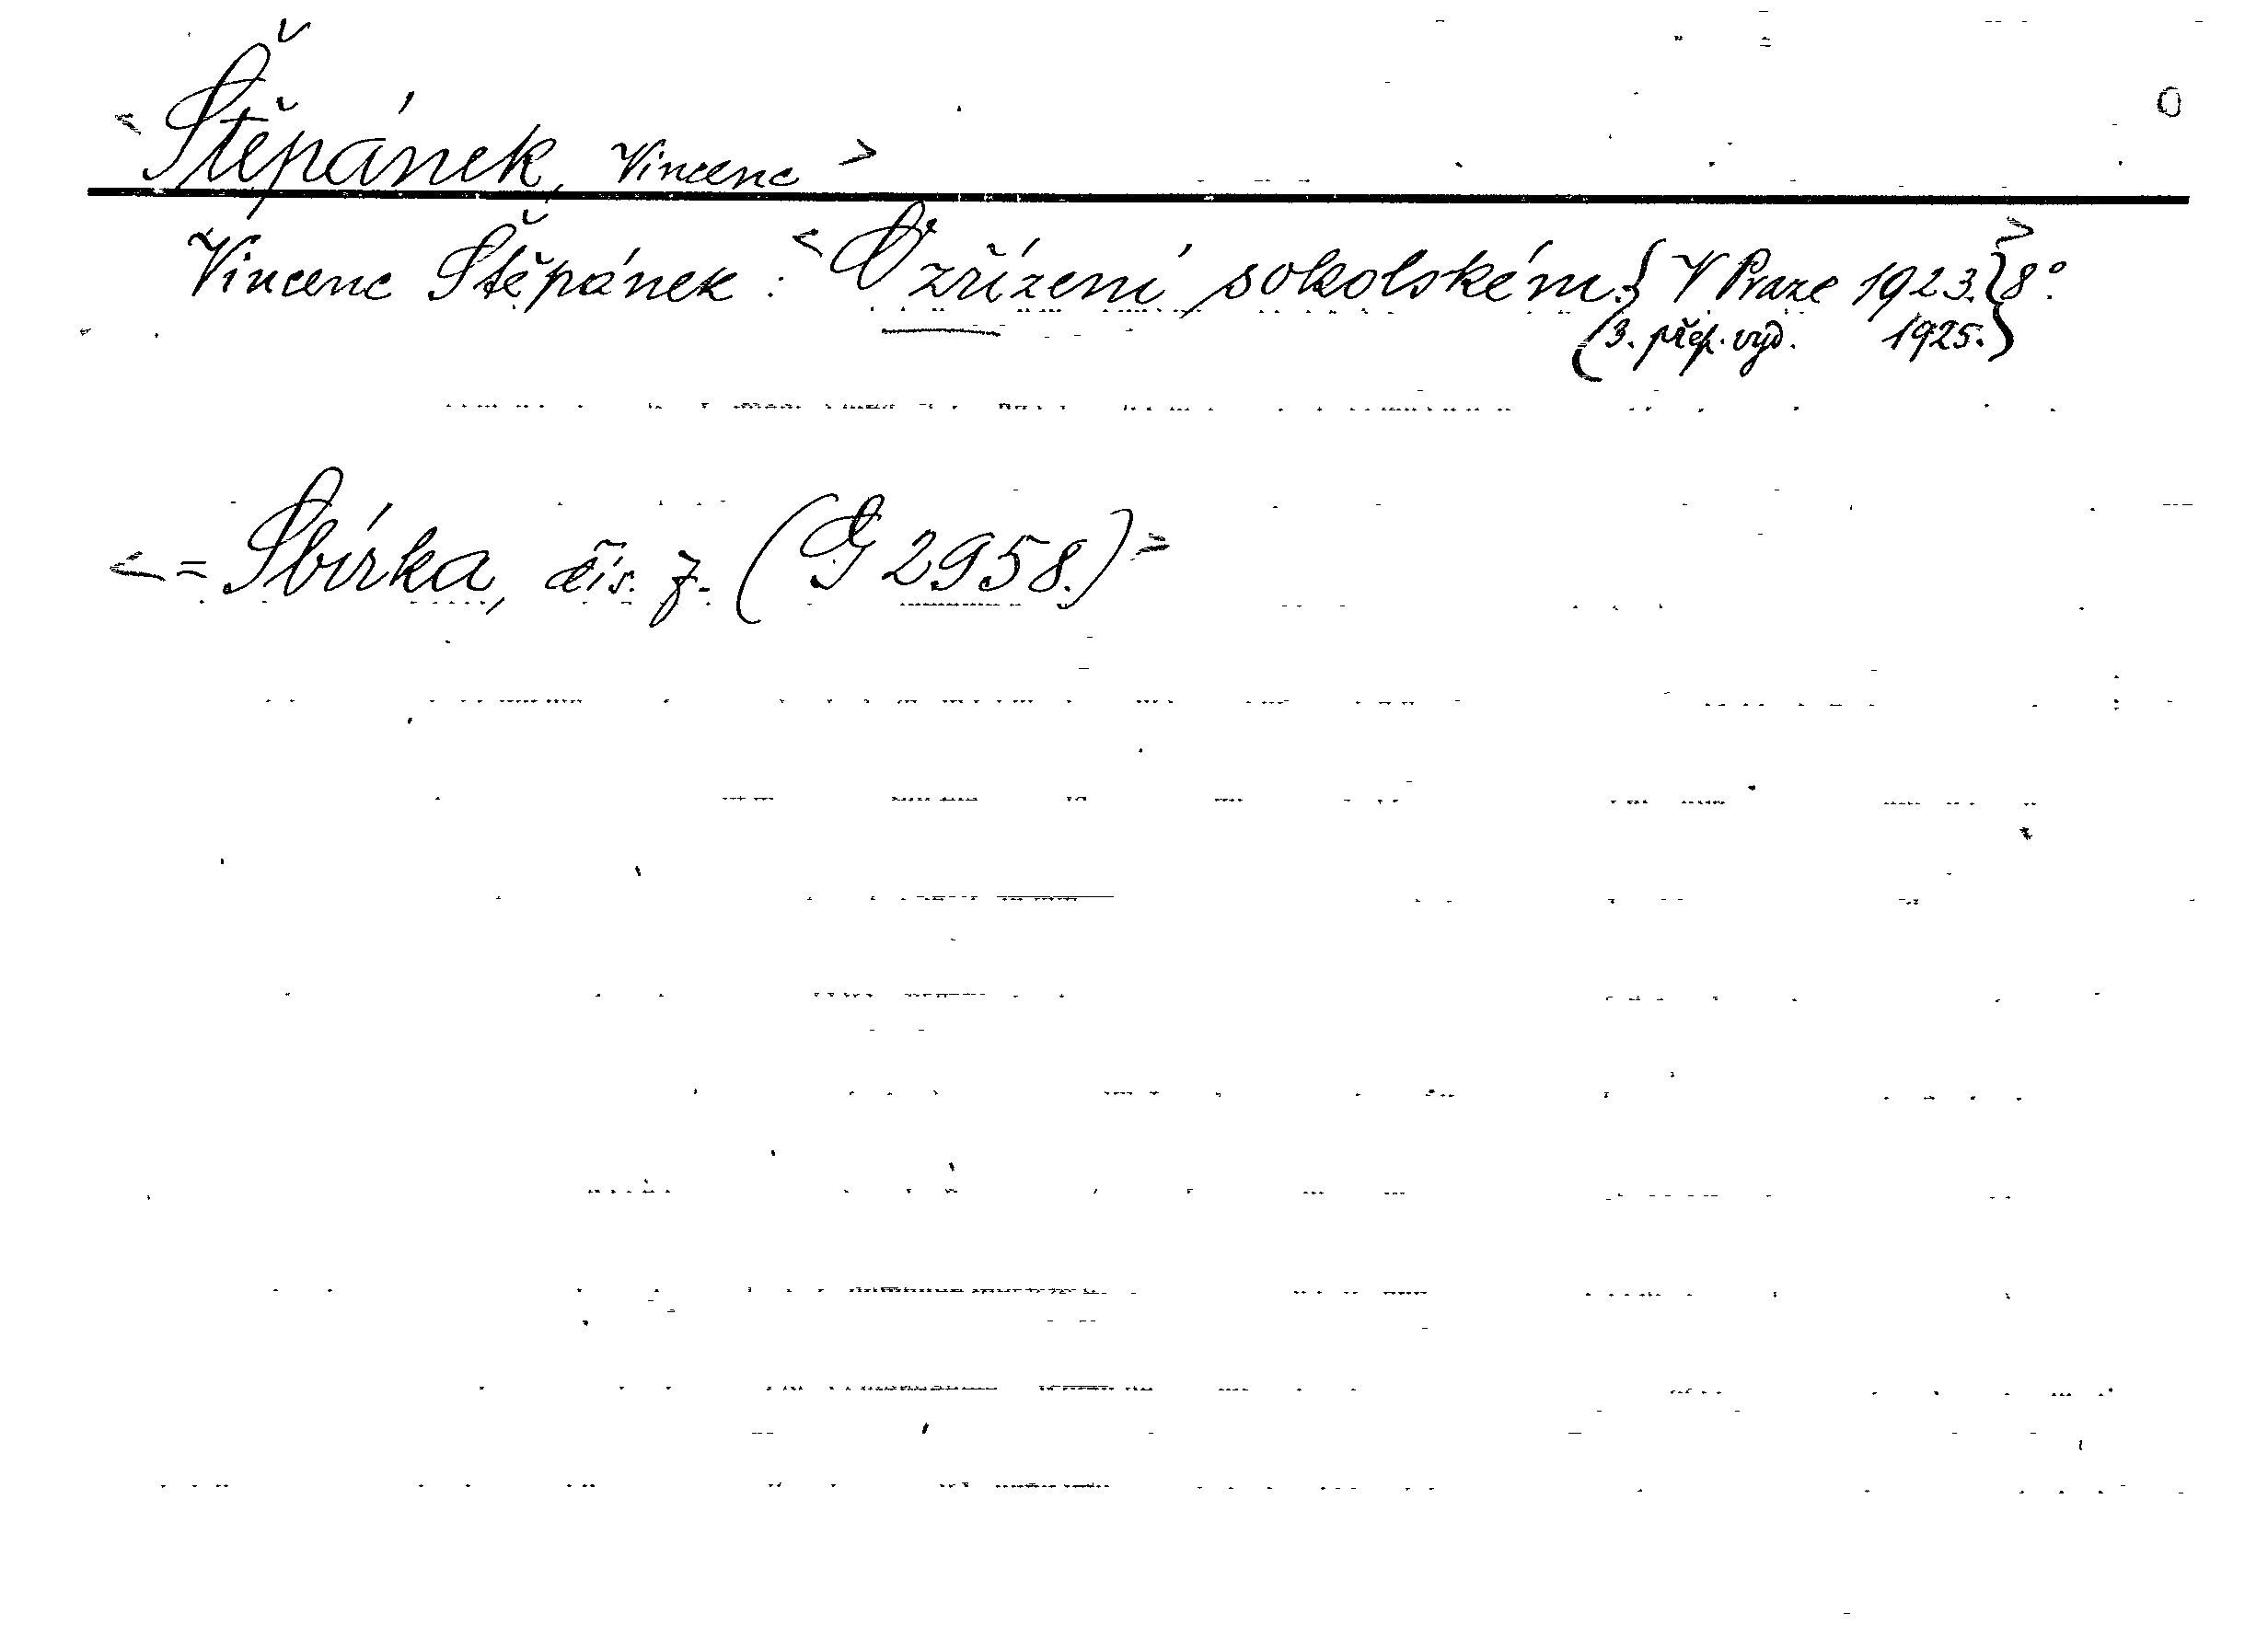 O
< Štěpánek, Vincenc >
Vincenc Štěpánek : < O zřízení sokolském. { V Praze 1923. } 8°. >
(3. přep. vyd. 1925.)
< = Sbírka, čís. 7. (G 2958.) >